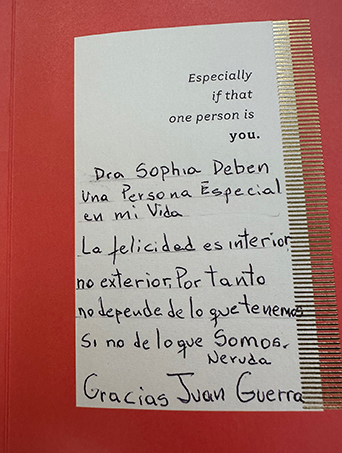 Especially
if that
one person is
you.
Dra Sophia Deben
Una Persona Especial
en mi Vida
La felicidad es interior
no exterior, Por tanto
no depende de lo que tenemos
Si no de lo que Somos.
Neruda
Gracias Juan Guerra